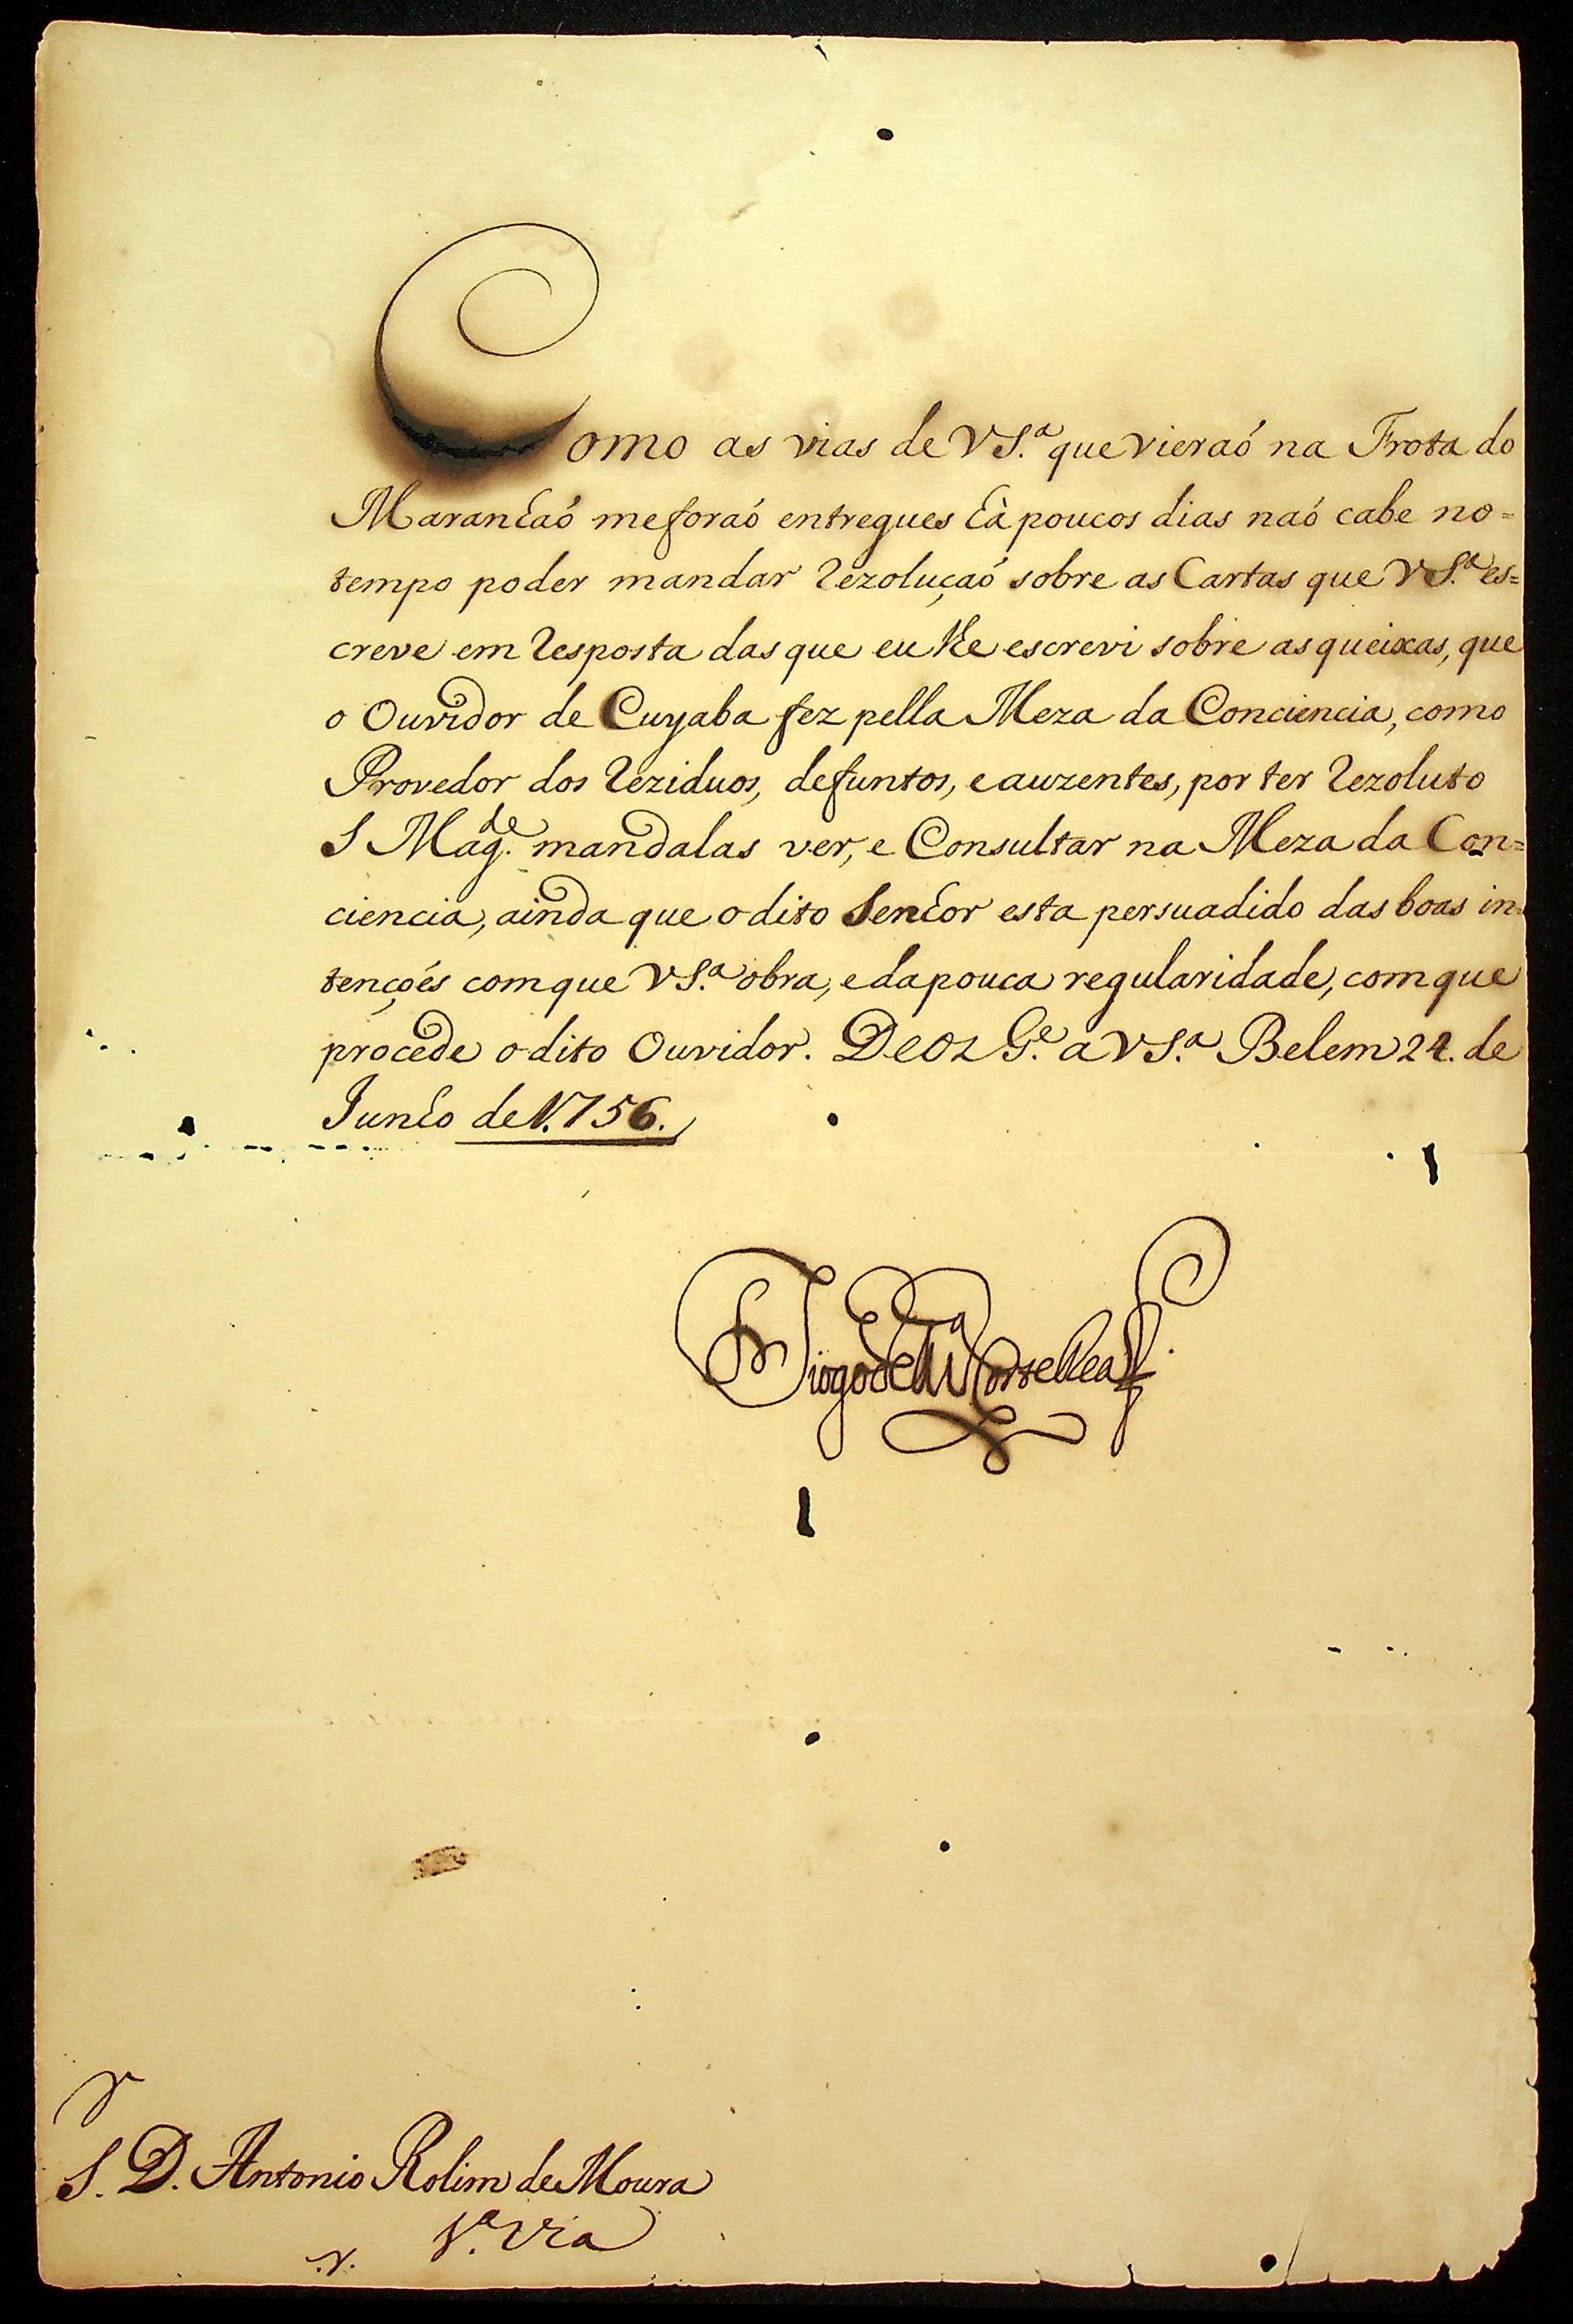 Como as vias de V S.ª que vieraõ na Frota do
Maranhaõ me foraõ entregues hà poucos dias naõ cabe no=
tempo poder mandar rezoluçaõ sobre as Cartas que V S.ª es=
creve em resposta das que eu lhe escrevi sobre as queixas, que
o Ouvidor de Cuyaba fez pella Meza da Conciencia, como
Provedor dos reziduos, defuntos, e auzentes, por ter rezoluto
S Mag.de mandalas ver, e Consultar na Meza da Con=
ciencia, ainda que o dito Senhor esta persuadido das boas in=
tenções com que V S.ª obra, e da pouca regularidade, com que
procede o dito Ouvidor. Deos G.e a V S.ª Belem 24. de
Junho de 1.756.
Diogo de M.ça Corte Real
S. D. Antonio Rolim de Moura
1.ª Via